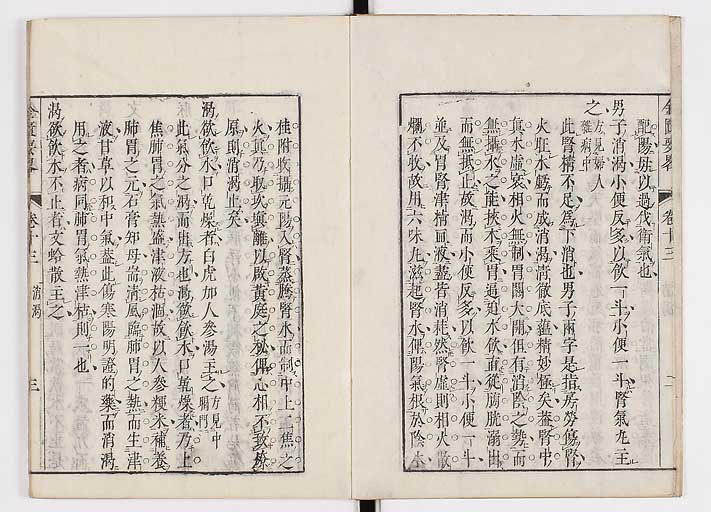 配陽毋以過伐衛氣也
男子消渴小便反多以飲一斗小便一斗腎氣丸主
之 方見婦人雜病中
此腎精不足為下消也男子兩字是指房勞傷腎
火旺水虧而成消渴清徹底蘊精妙極矣蓋腎中
真水虛衰相火無制胃關大開但有消陰之勢而
無攝水之能挾木乘胃逼迫水飲直從膀胱溺出
而無抵止故渴而小便反多以飲一斗小便一斗
並及胃腎津精血液盡皆消耗然腎虛則相火散
爛不收故用六味丸滋起腎水俾陽氣根於陰水
桂附收攝元陽入腎蒸騰腎水而制中上二焦之
火真乃取坎填離以啟黃庭之秘俾心相不致燎
原則消渴止矣
渴欲飲水口乾燥者白虎加人參湯主之 方見中暍門
此氣分之渴而出方也渴欲飲水口乾燥者乃上
焦肺胃之氣熱盛津液枯涸故以人參粳米補養
肺胃之元石膏知母崙清風降肺胃之熱而生津
液甘草以和中氣蓋此傷寒陽明證的藥而消渴
用之者病同肺胃氣熱津枯則一也
渴欲飲水不止者文蛤散主之
金匱要畧
卷十三
消渴
三